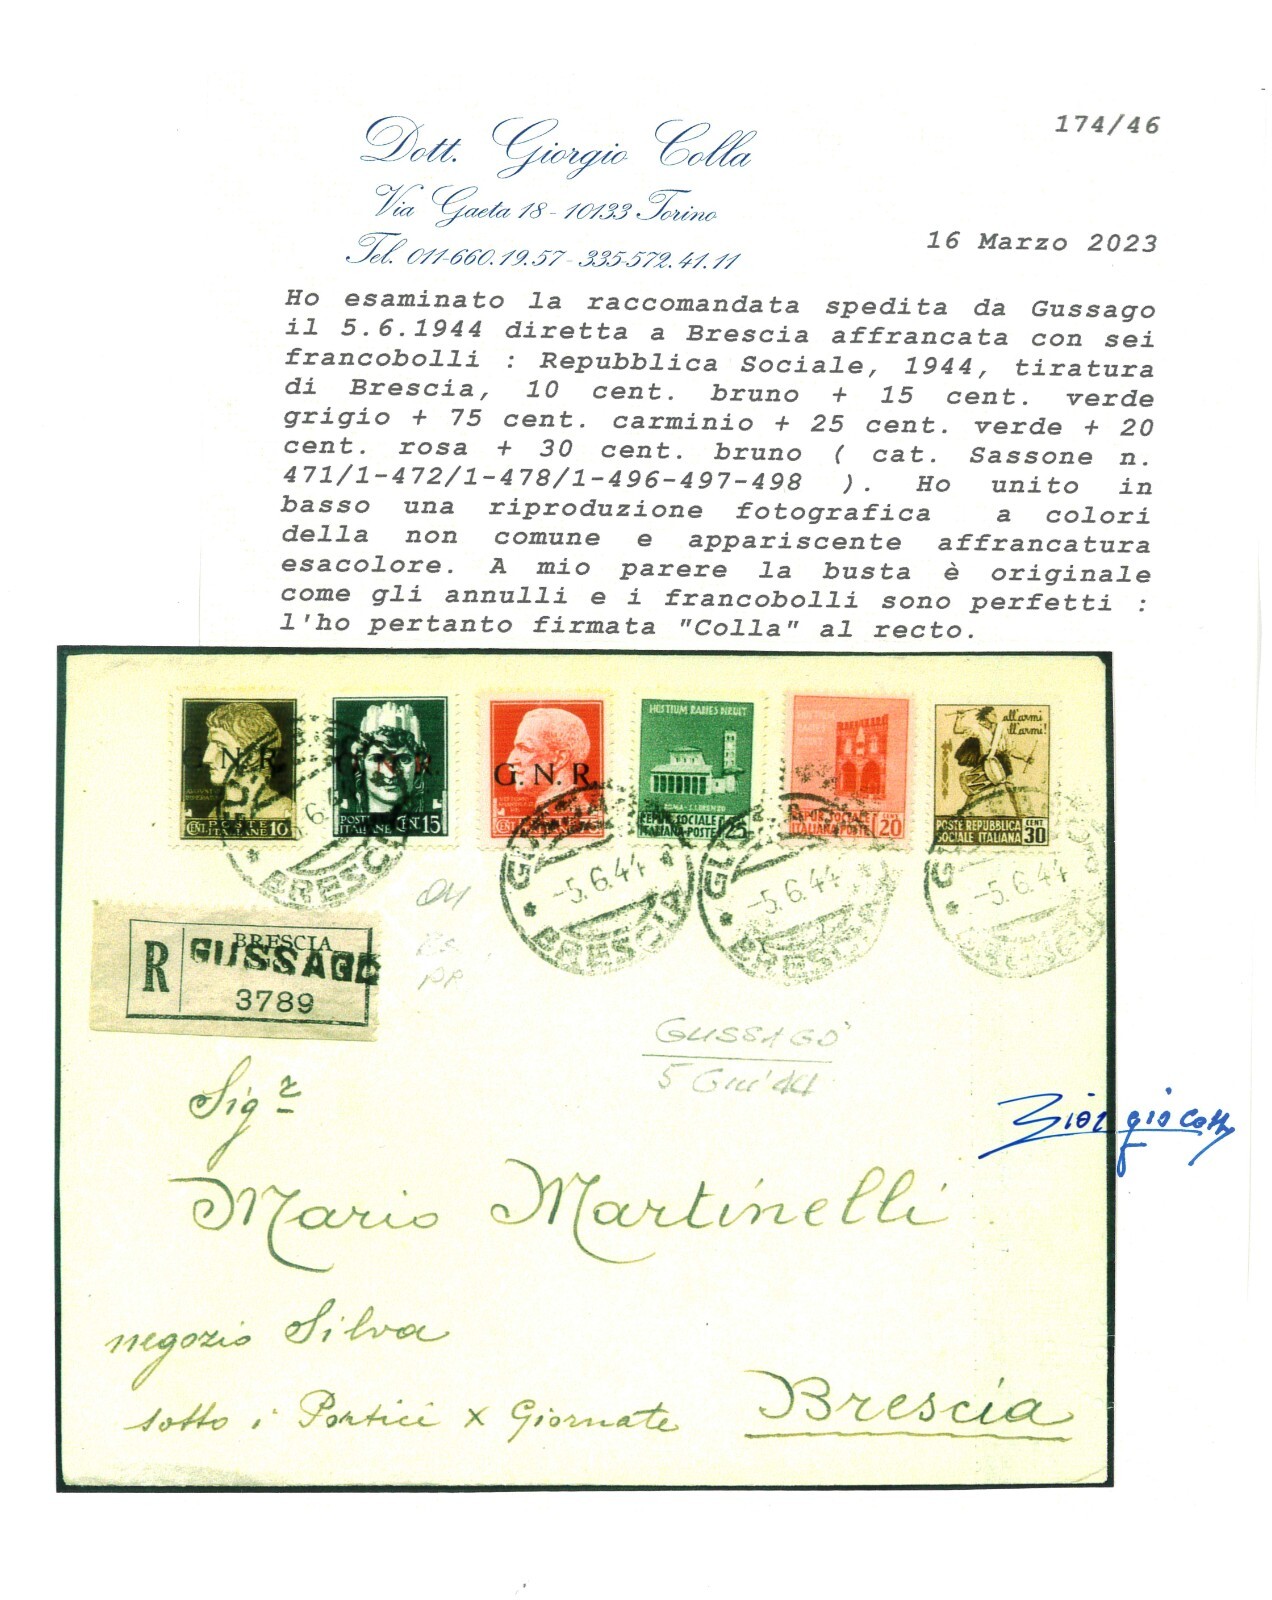 174/46
Dott. Giorgio Colla
Via Gaeta 18 - 10133 Torino
Tel. 011-660.19.57 - 335-572.41.11
16 Marzo 2023
Ho esaminato la raccomandata spedita da Gussago
il 5.6.1944 diretta a Brescia affrancata con sei
francobolli : Repubblica Sociale, 1944, tiratura
di Brescia, 10 cent. bruno + 15 cent. verde
grigio + 75 cent. carminio + 25 cent. verde + 20
cent. rosa + 30 cent. bruno ( cat. Sassone n.
471/1-472/1-478/1-496-497-498 ). Ho unito in
basso una riproduzione fotografica a colori
della non comune e appariscente affrancatura
esacolore. A mio parere la busta è originale
come gli annulli e i francobolli sono perfetti :
l'ho pertanto firmata "Colla" al recto.
G.N.R.
CENT. POSTE ITALIANE 10
POSTE ITALIANE CENT 15
G.N.R.
HOSTIUM RABIES DIRUIT
ROMA - S. LORENZO
REPUB. SOCIALE ITALIANA-POSTE 25
HOSTIUM RABIES DIRUIT
REPUB. SOCIALE ITALIANA-POSTE CENT 20
all'armi
all'armi!
POSTE REPUBBLICA SOCIALE ITALIANA CENT 30
BRESCIA
-5.6.44
BRESCIA
-5.6.44
BRESCIA
-5.6.44
BRESCIA
R
BRESCIA
GUSSAGO
3789
GUSSAGO
5 Giu' 44
Sigr
Giorgio Colla
Mario Martinelli
negozio Silva
sotto i Portici x Giornate
Brescia